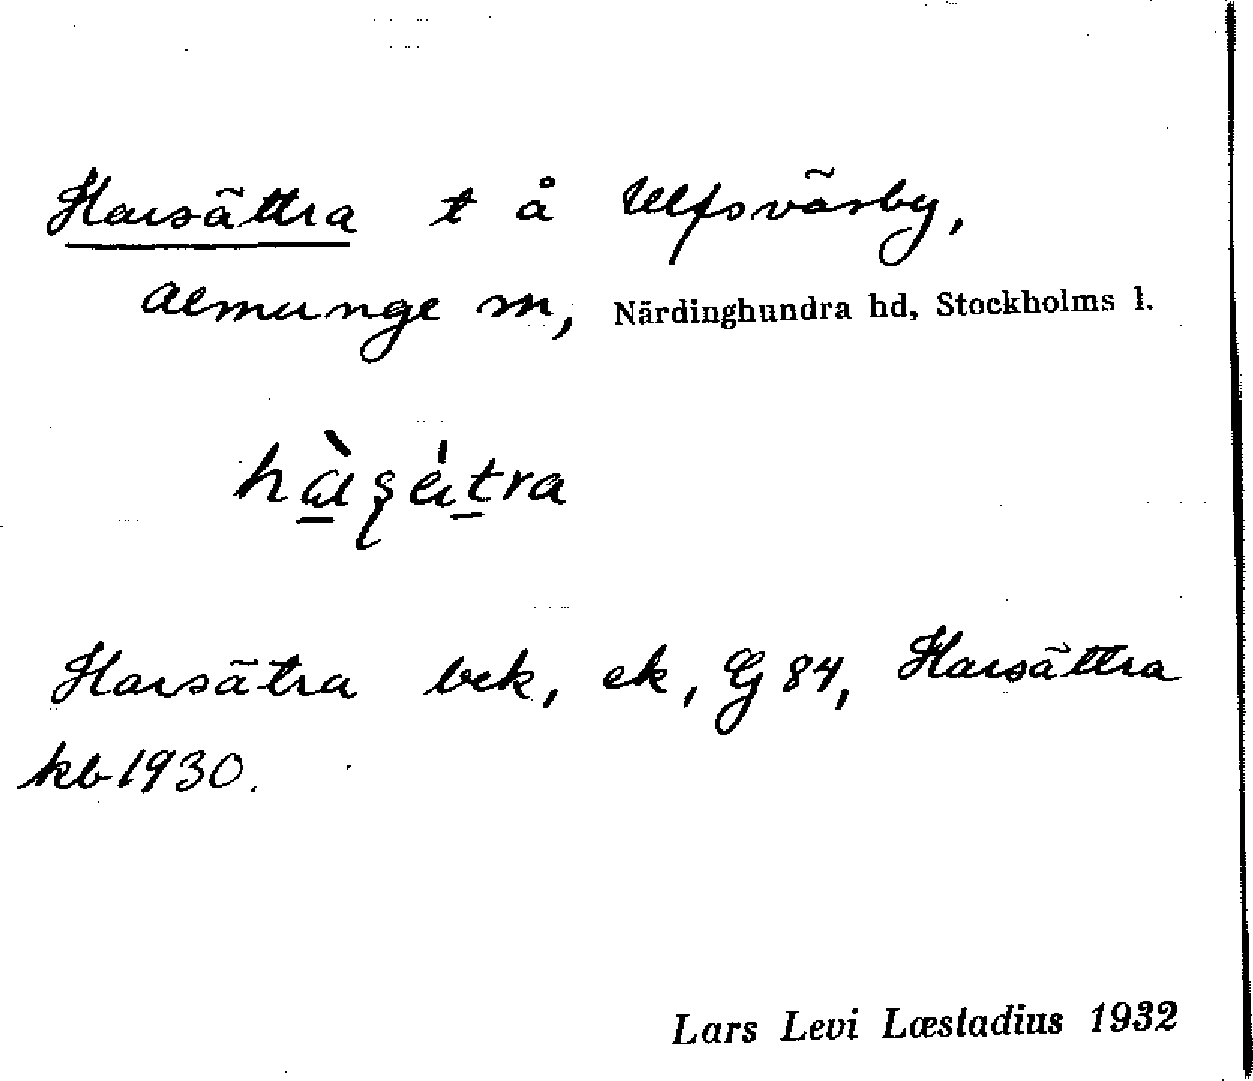 Harsättra t å Ulfsväsby,
Almunge sn, Närdinghundra hd, Stockholms l.
Harsätra bek, ek, G 84, Harsättra
kb 1930.
Lars Levi Læstadius 1932